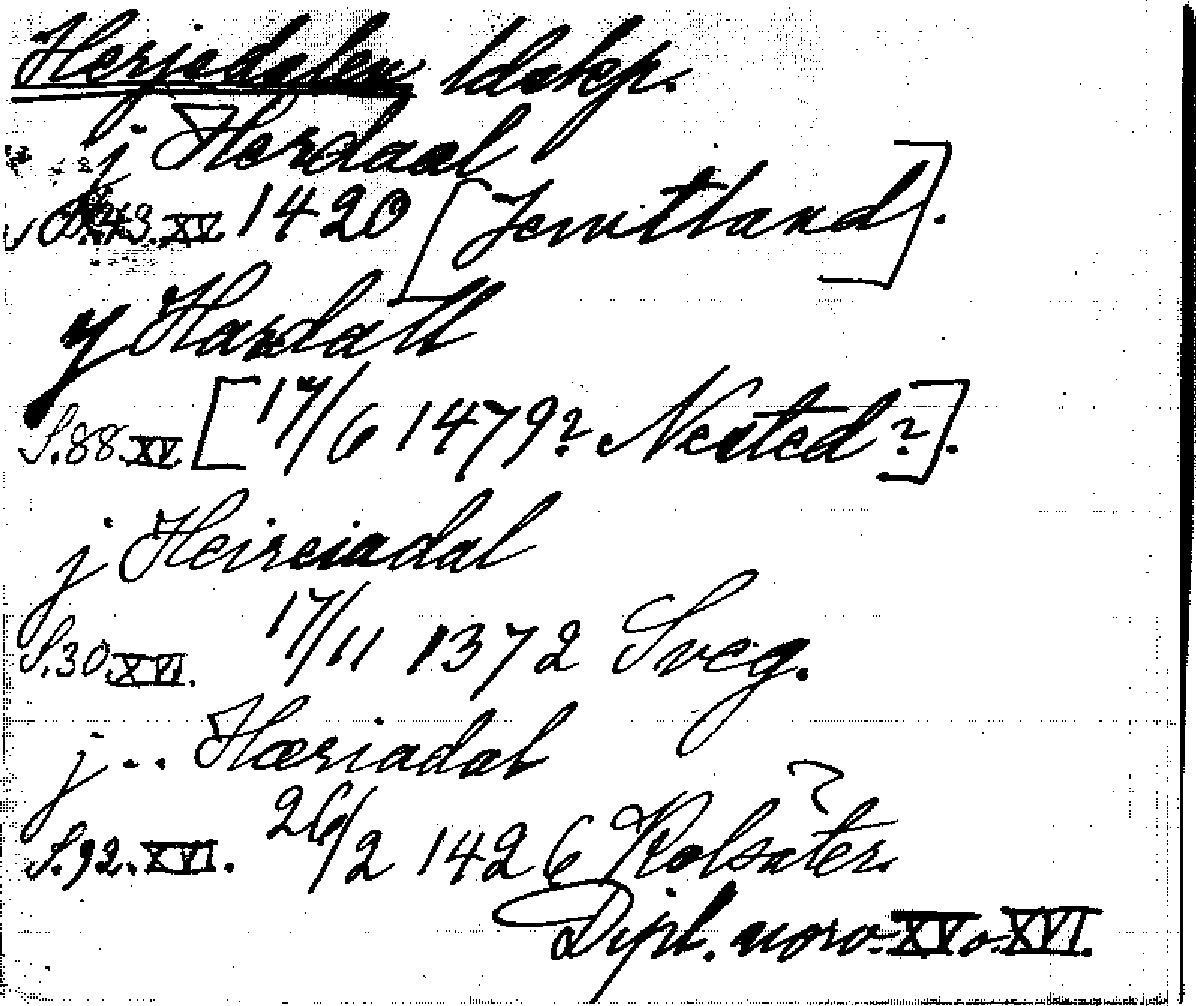 Herjedalen ldskp.
j Herdaal
S.43.XV. 1420 [Jemtland].
y Hardall
S.88.XV. [17/6 1479? Nested?].
j Heireiadal
S.30.XVI. 17/11 1372 Sveg.
j .. Hæriadal
S.92.XVI. 26/2 1426 Kolsäter.
Dipl. norv. XV o. XVI.